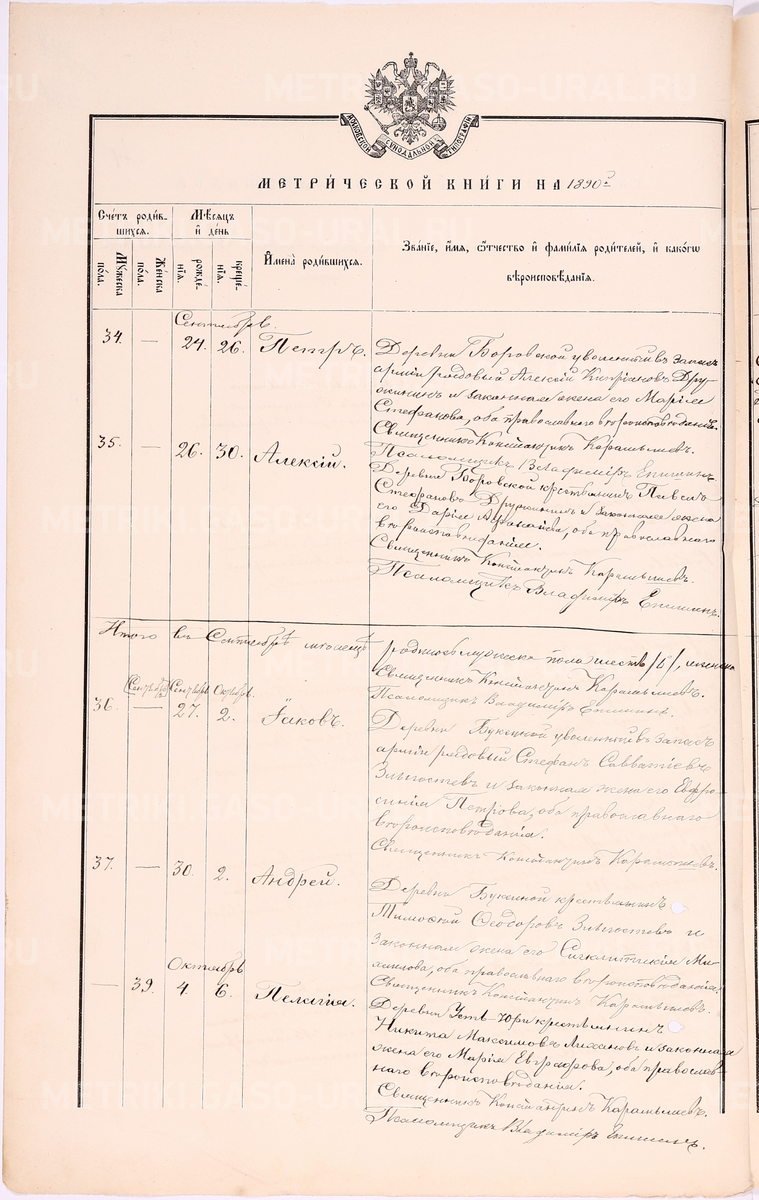 МОСКОВСКОЙ СѴНОДАЛЬНОЙ ТИПОГРАФІИ
МЕТРИ́ЧЕСКОЙ КНИ́ГИ НА 1890 г.
Счетъ роди́в-
шихся.
Мꙋжеска
по́ла.
Же́нска
по́ла.
Мѣ́сяцъ
и҆ де́нь
рожде-
нїя.
креще-
нїя.
И҆мена̀ роди́вшихся.
Зва́нїе, и҆́мя, ѻ҆́тчество и҆ фами́лїя роди́телей, и҆ како́гѡ
вѣроисповѣ́данїя.
Сентябрь.
34. — 24. 26. Петръ.
Деревни Боровской уволенный въ запасъ
арміи рядовый Алексій Кипріановъ Дру-
жининъ и законная жена его Марія
Стефанова, оба православнаго вѣроисповѣданія.
Священникъ Константинъ
Псаломщикъ Владиміръ Епишинъ.
35. — 26. 30. Алексій.
Деревни Боровской крестьянинъ Павелъ
Стефановъ Дружининъ и законная жена
его Дарія оба православнаго
вѣроисповѣданія.
Священникъ Константинъ
Псаломщикъ Владиміръ Епишинъ.
Итого въ Сентябрѣ мѣсяцѣ родилось мужеска пола шесть /6/, женска
Священникъ Константинъ
Псаломщикъ Владиміръ Епишинъ.
Сентябрь Октябрь.
36. — 27. 2. Іаковъ.
Деревни Букиной уволенный въ запасъ
арміи рядовый Стефанъ Савватіевъ
и законная жена его Евфро-
синія Петрова, оба православнаго
вѣроисповѣданія.
Священникъ Константинъ
37. — 30. 2. Андрей.
Деревни Букиной крестьянинъ
Тимоѳей Ѳеодоровъ и
законная жена его Синклитикія Ми-
хаилова, оба православнаго вѣроисповѣданія.
Священникъ Константинъ
Октябрь
— 39. 4. 6. Пелагія.
Деревни Усть-Юри крестьянинъ
Никита Максимовъ и законная
жена его Марія Евграфова, оба православ-
наго вѣроисповѣданія.
Священникъ Константинъ
Псаломщикъ Владиміръ Епишинъ.
METRIKI.GASO-URAL.RU